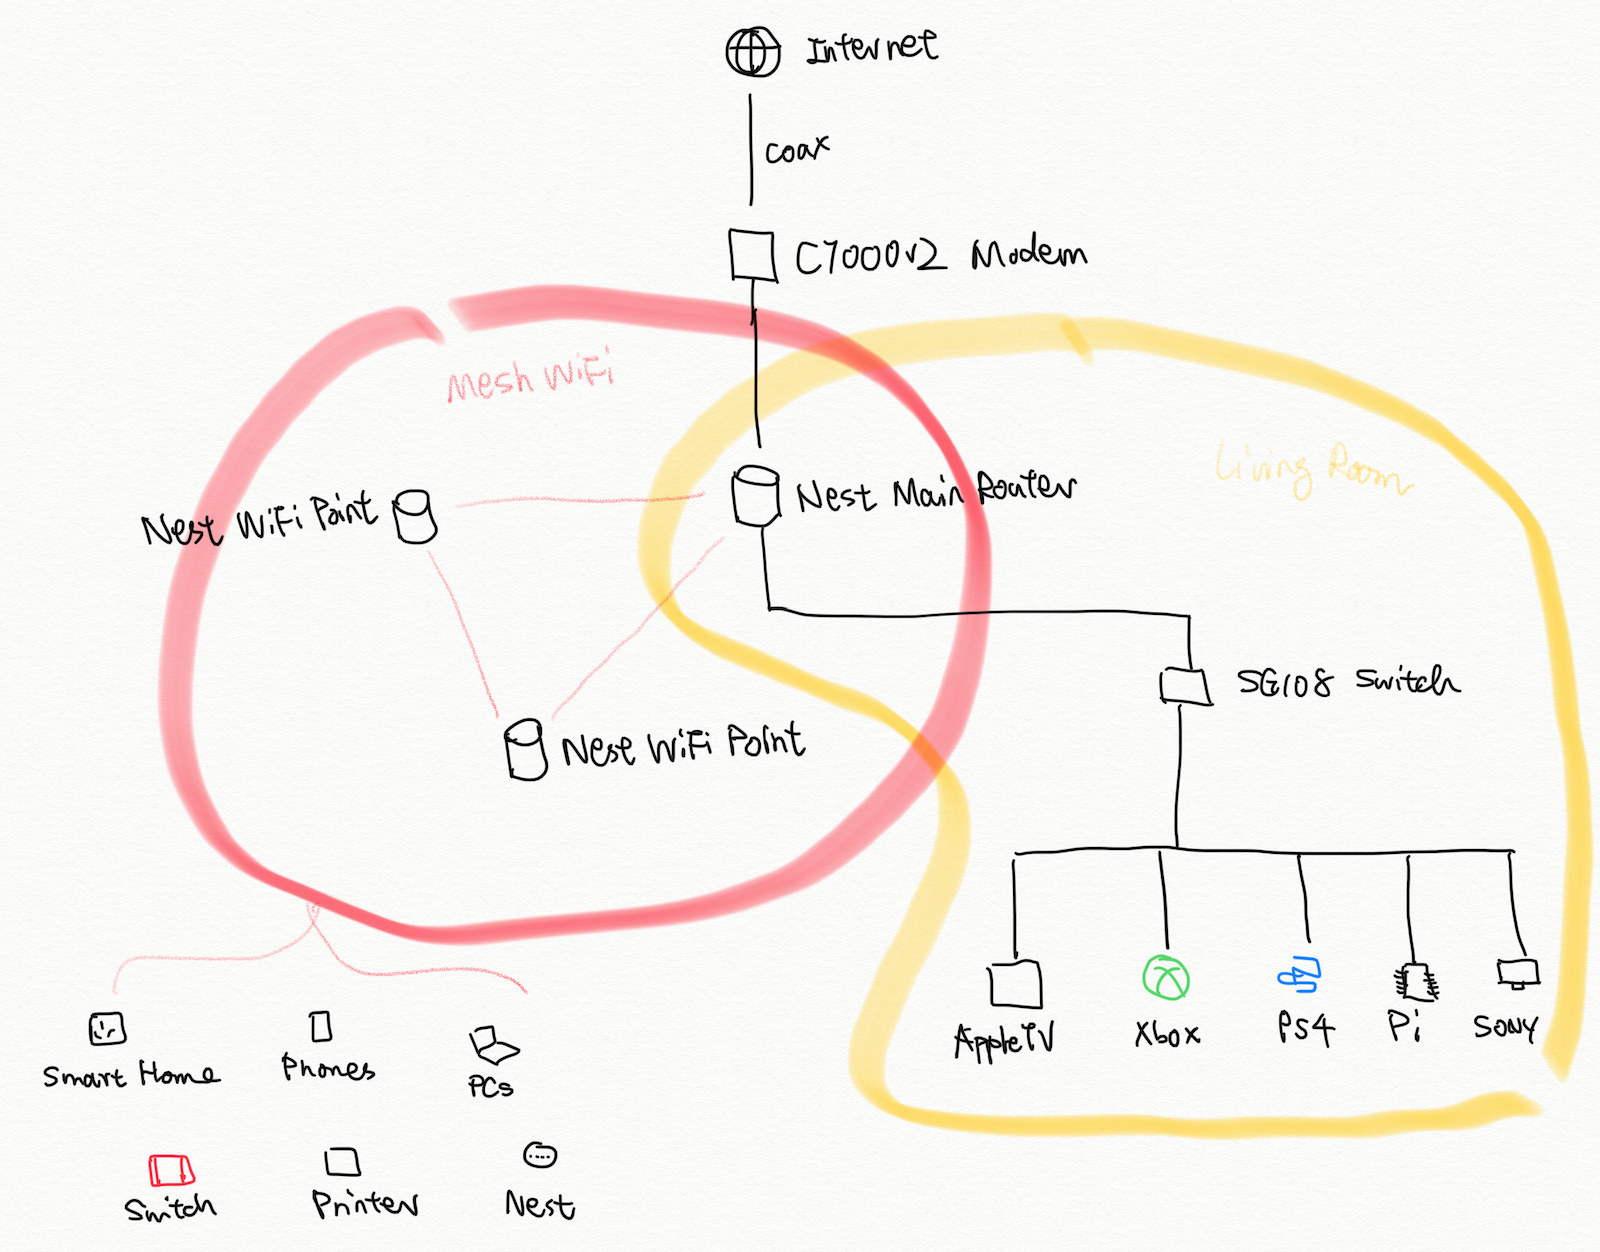 Internet
coax
C7000v2 Modem
Mesh WiFi
Living Room
Nest WiFi Point
Nest Main Router
SG108 Switch
Nest WiFi Point
AppleTV
Xbox
PS4
Pi
SONY
Smart Home
Phones
PCs
Switch
Printer
Nest